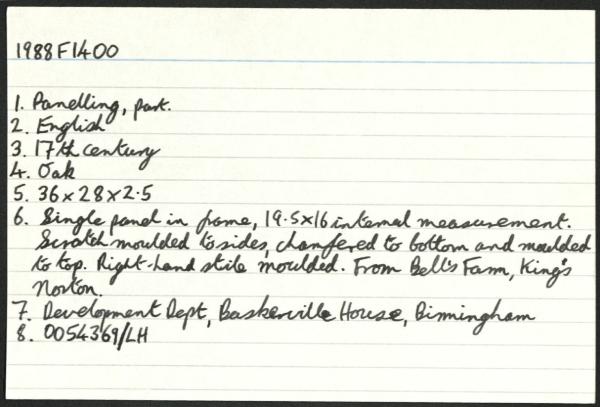 1988F1400
1. Panelling, part.
2. English
3. 17th century
4. Oak
5. 36 x 28 x 2.5
6. Single panel in frame, 19.5 x 16 internal measurement.
Scratch moulded to sides, chamfered to bottom and moulded
to top. Right-hand stile moulded. From Bell's Farm, King's
Norton.
7. Development Dept, Baskerville House, Birmingham
8. 0054369/LH